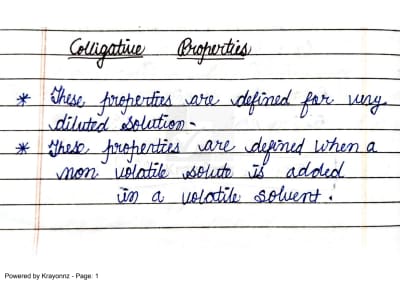 Colligative Properties
* These properties are defined for very
diluted solution-
* These properties are defined when a
non volatile solute is added
in a volatile solvent.
Powered by Krayonnz - Page: 1